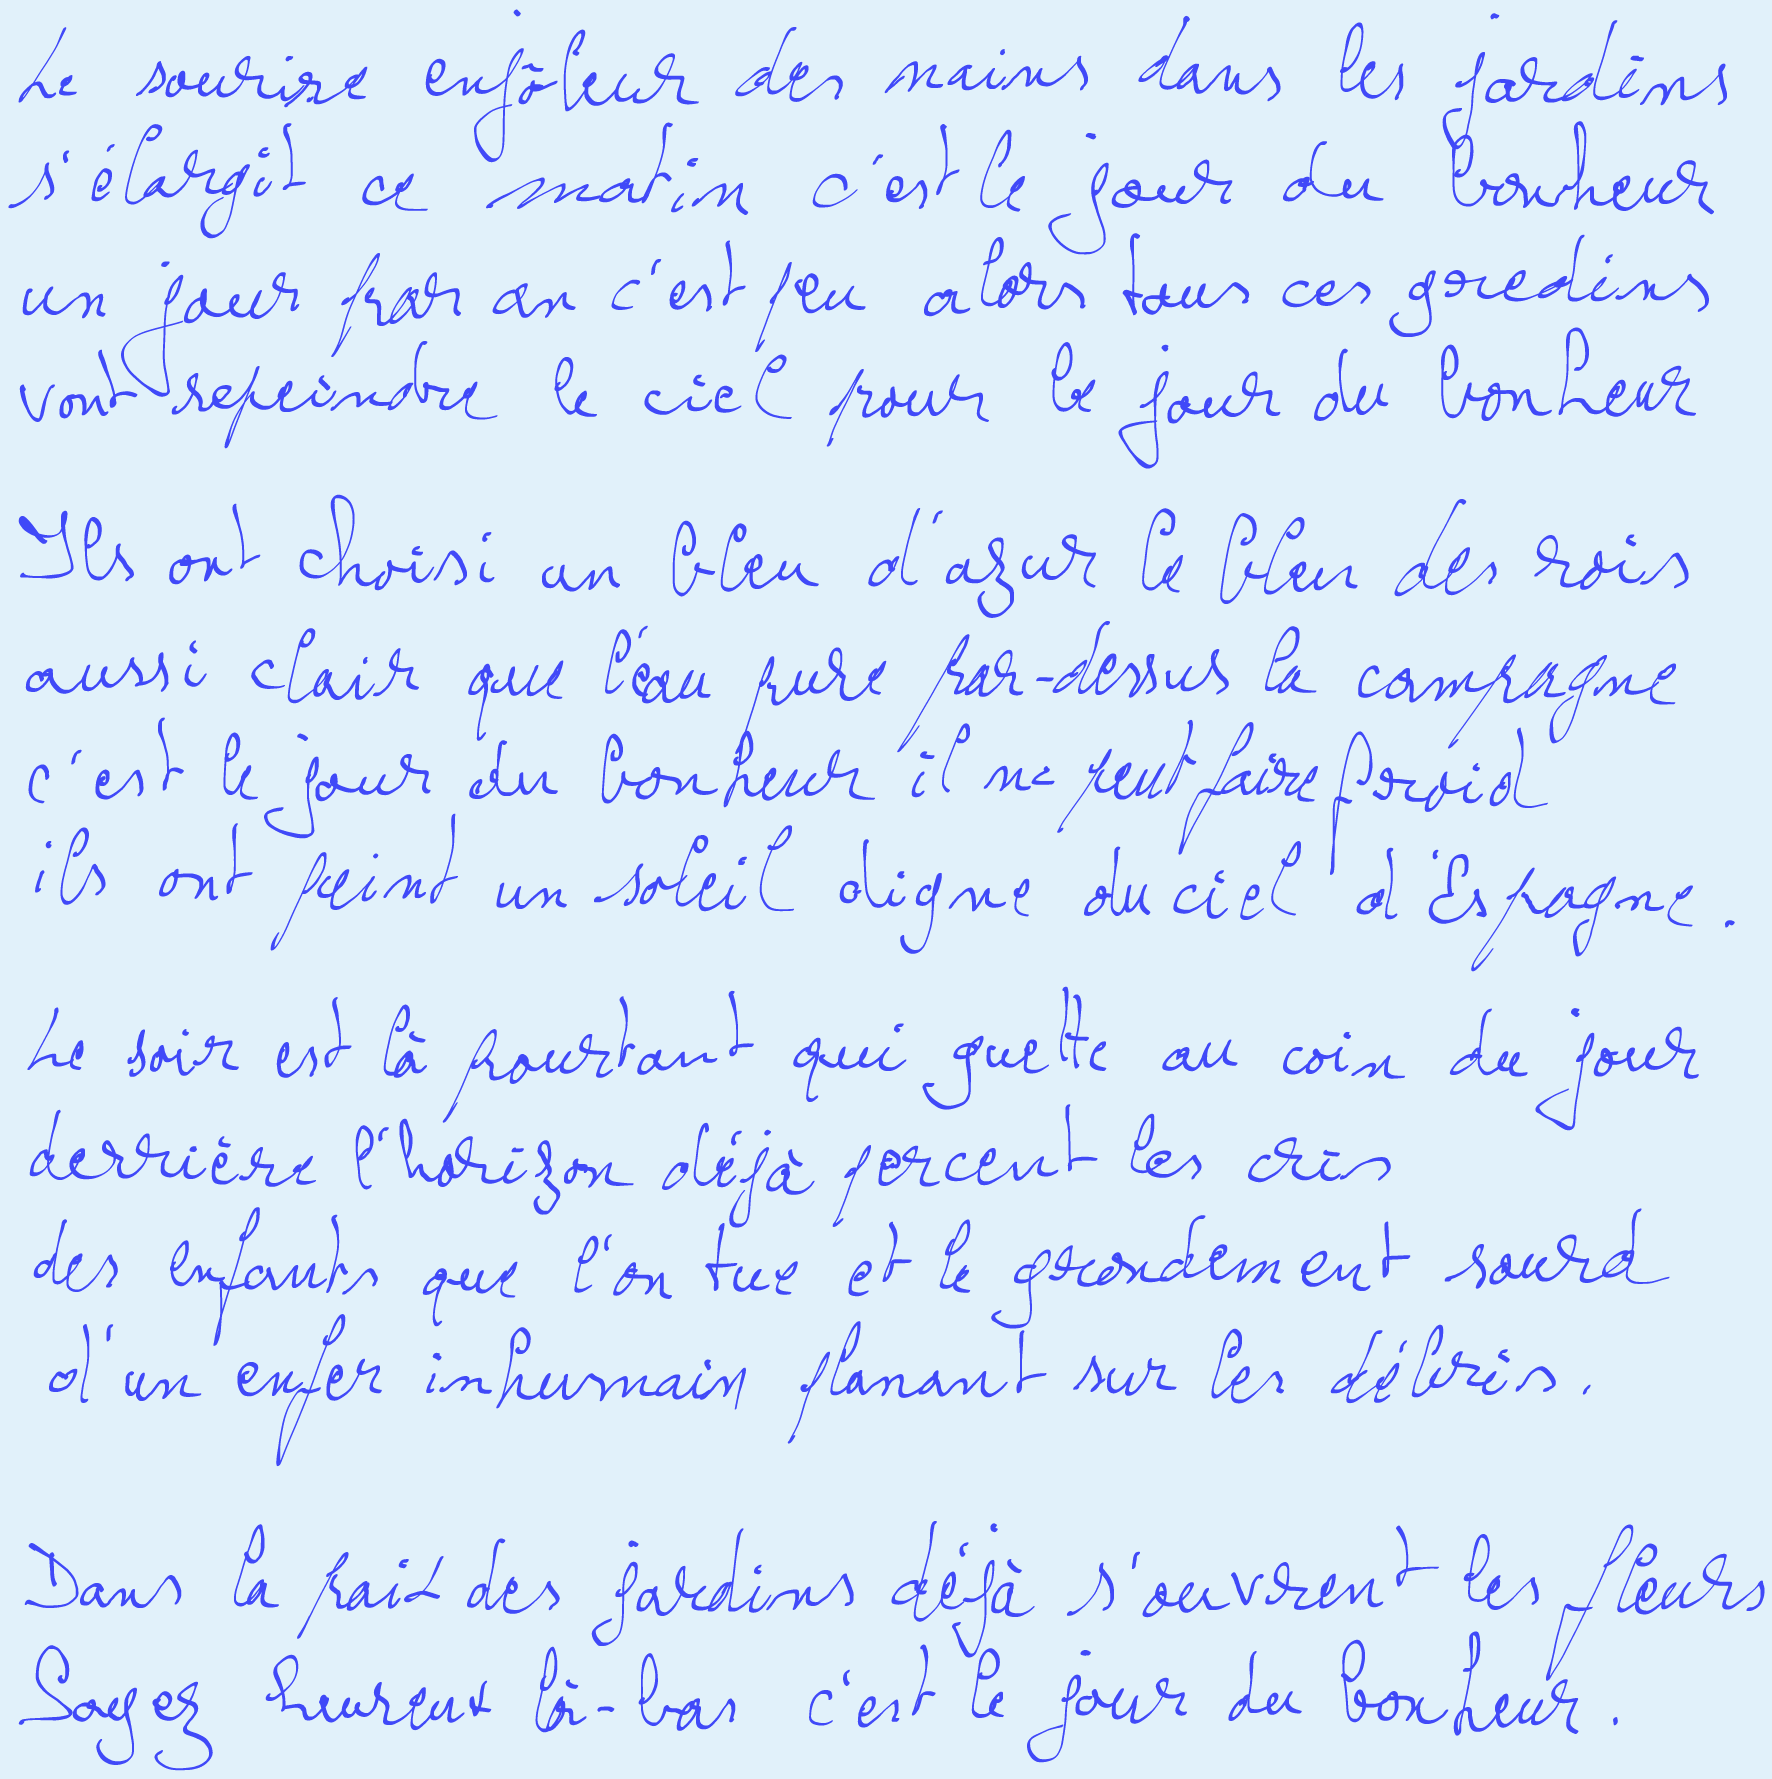 Le sourire enjôleur des nains dans les jardins
s'élargit ce matin c'est le jour du bonheur
un jour par an c'est peu alors tous ces gredins
vont repeindre le ciel pour le jour du bonheur
Ils ont choisi un bleu d'azur le bleu des rois
aussi clair que l'eau pure par-dessus la campagne
c'est le jour du bonheur il ne peut faire froid
ils ont peint un soleil digne du ciel d'Espagne.
Le soir est là pourtant qui guette au coin du jour
derrière l'horizon déjà percent les cris
des enfants que l'on tue et le grondement sourd
d'un enfer inhumain planant sur les débris.
Dans la paix des jardins déjà s'ouvrent les fleurs
Soyez heureux là-bas c'est le jour du bonheur.